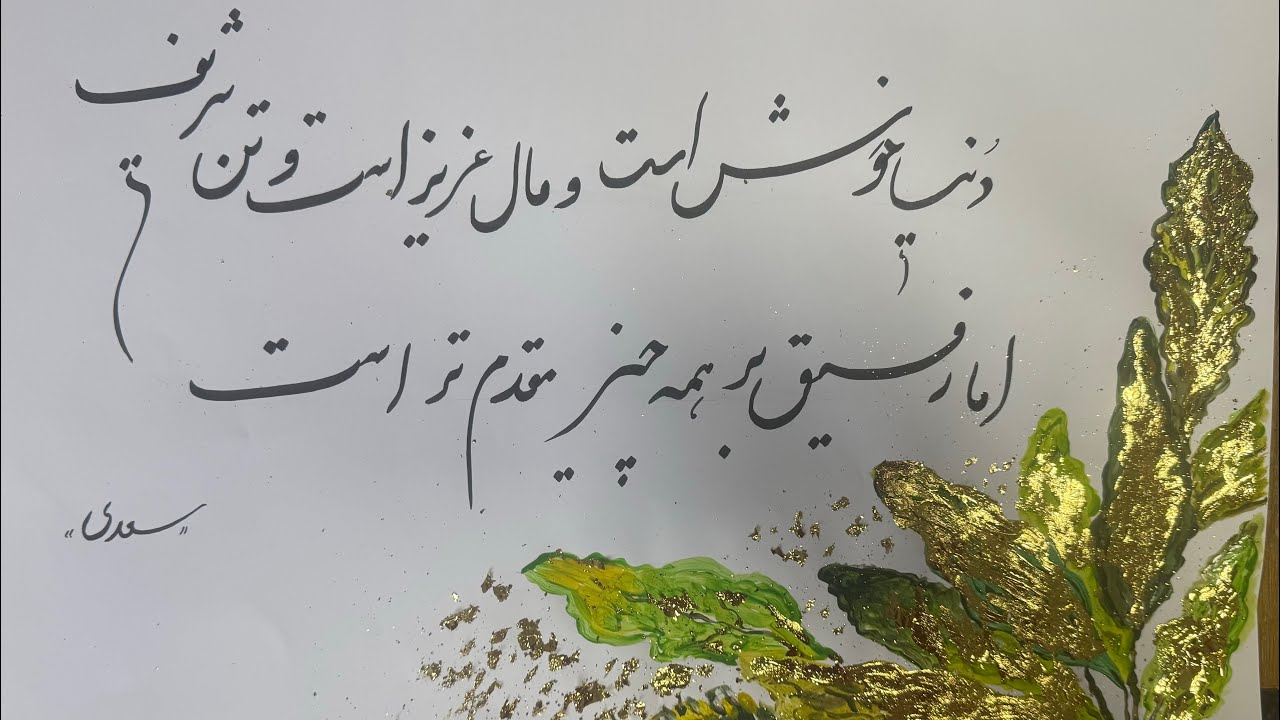 دُنیا خوَش است و مال عزیز است و تن شریف
اما رفیق بر همه چیز مقدم تر است
«سعدی»